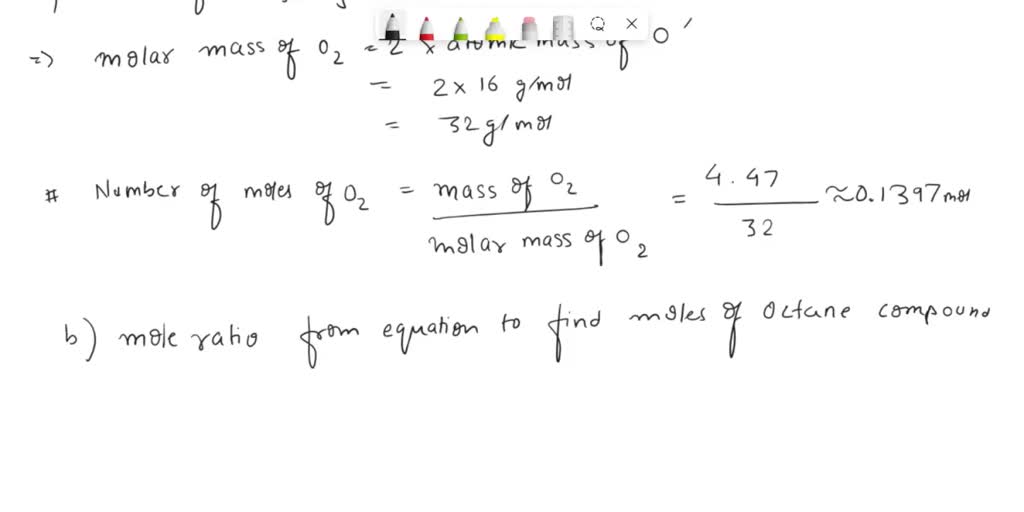 => molar mass of O2 = 2 x atomic mass of O
= 2 x 16 g/mol
= 32 g/mol
# Number of moles of O2 = mass of O2 / molar mass of O2 = 4.47 / 32 ≈ 0.1397 mol
b) mole ratio from equation to find moles of octane compound